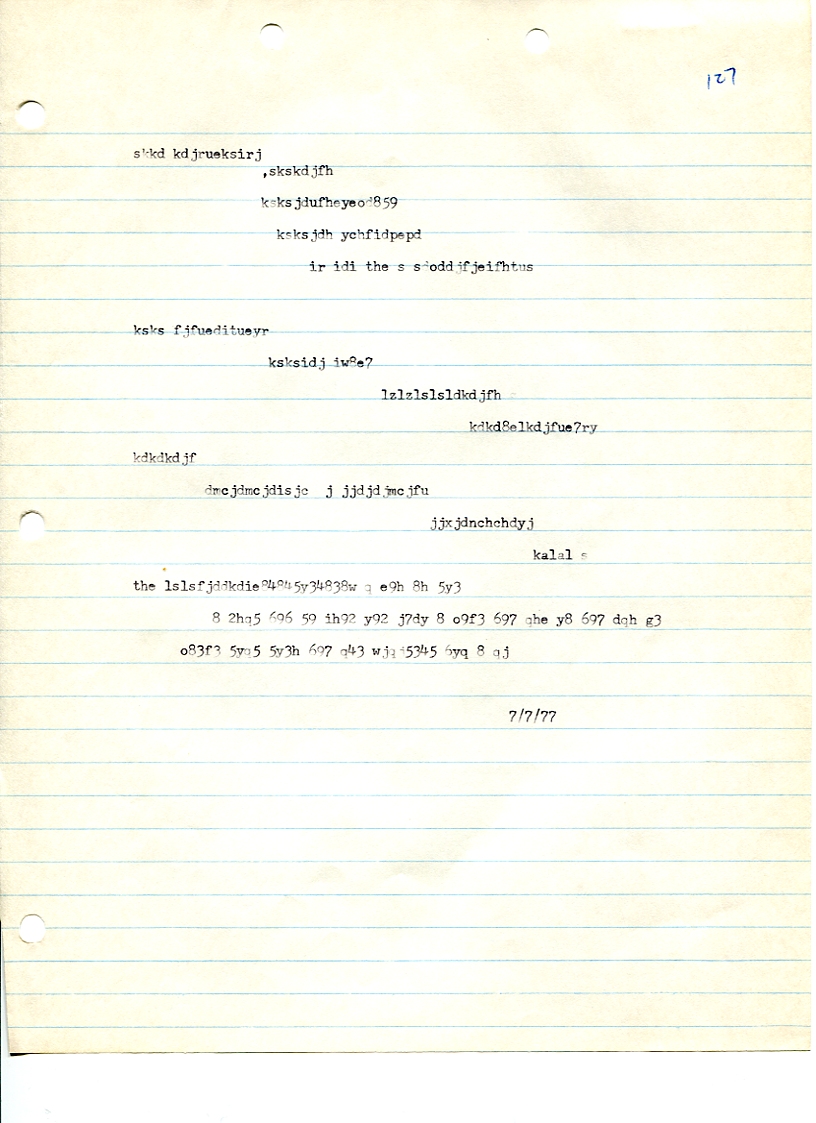 127
skkd kdjrueksirj
,skskdjfh
ksksjdufheyeod859
ksksjdh ychfidpepd
ir idi the s sioddjfjeifhtus
ksks fjfueditueyr
ksksidj iw8e7
lzlzlslsldkdjfh
kdkd8elkdjfue7ry
kdkdkdjf
dmcjdmcjdisjc j jjdjdjmcjfu
jjxjdnchchdyj
kalal s
the lslsfjddkdie84845y34838w q e9h 8h 5y3
8 2hq5 696 59 ih92 y92 j7dy 8 o9f3 697 qhe y8 697 dqh g3
o83f3 5yq5 5y3h 697 q43 wjqi5345 6yq 8 qj
7/7/77